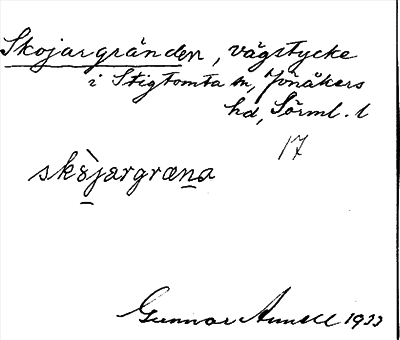 Skojargränden, vägstycke
i Stigtomta sn, Jönåkers
hd, Sörml. l
17
skòjargræna
Gunnar 1933